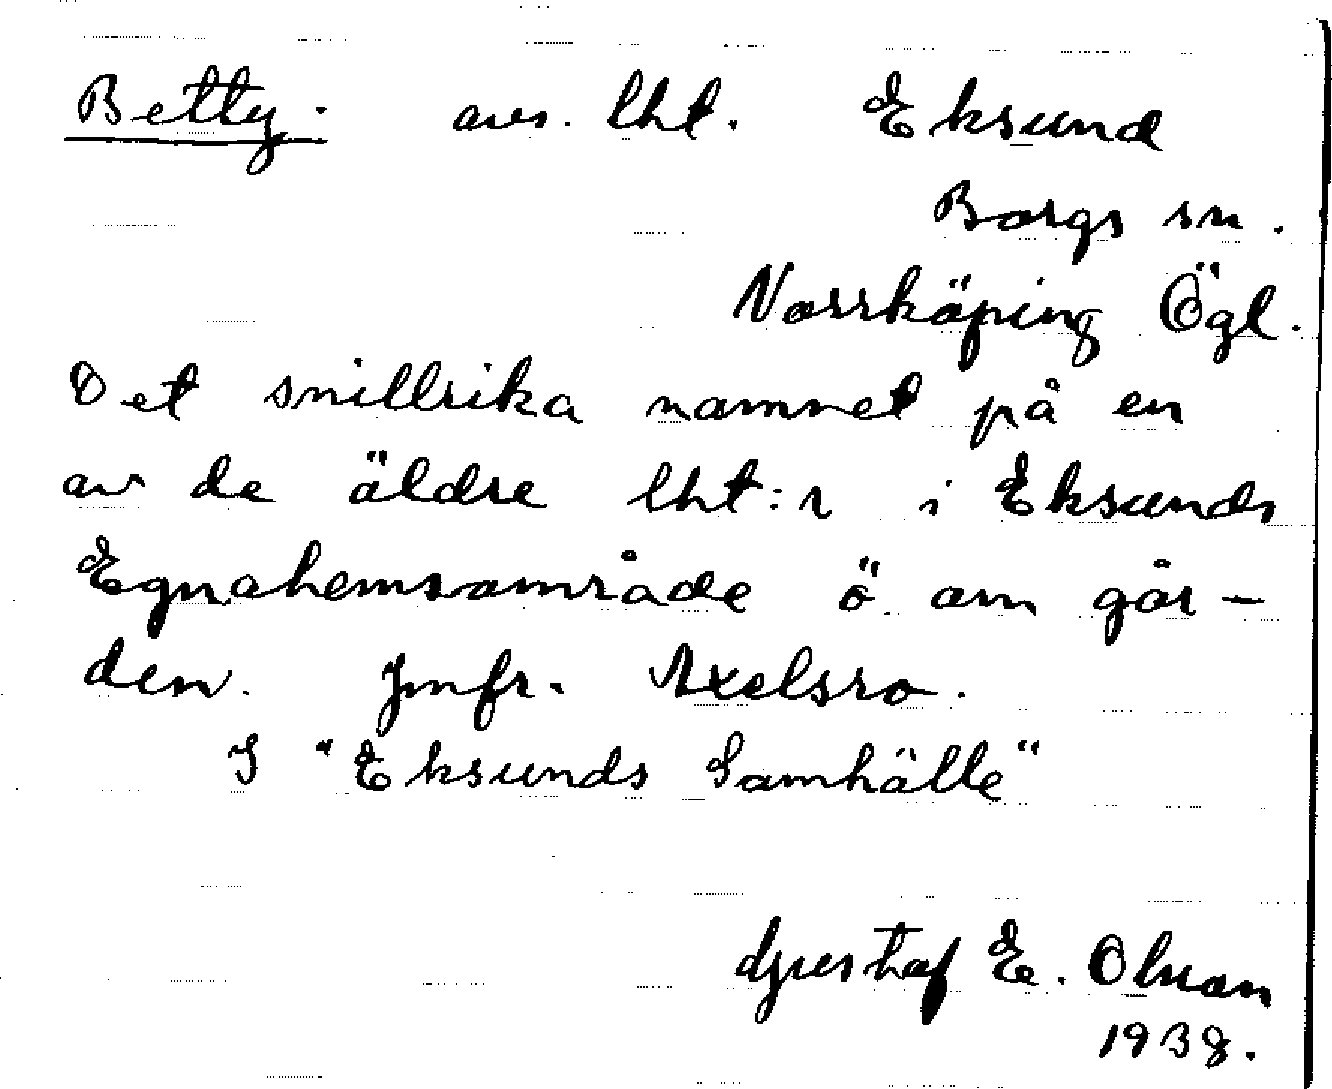 Betty. avs. lht. Eksund
Borgs sn.
Norrköping Ögl.
Det snillrika namnet på en
av de äldre lht:r i Eksunds
Egnahemsområde ö. om går-
den. Jmfr. Axelsro.
I "Eksunds Samhälle"
Gustaf E. Olsson
1938.